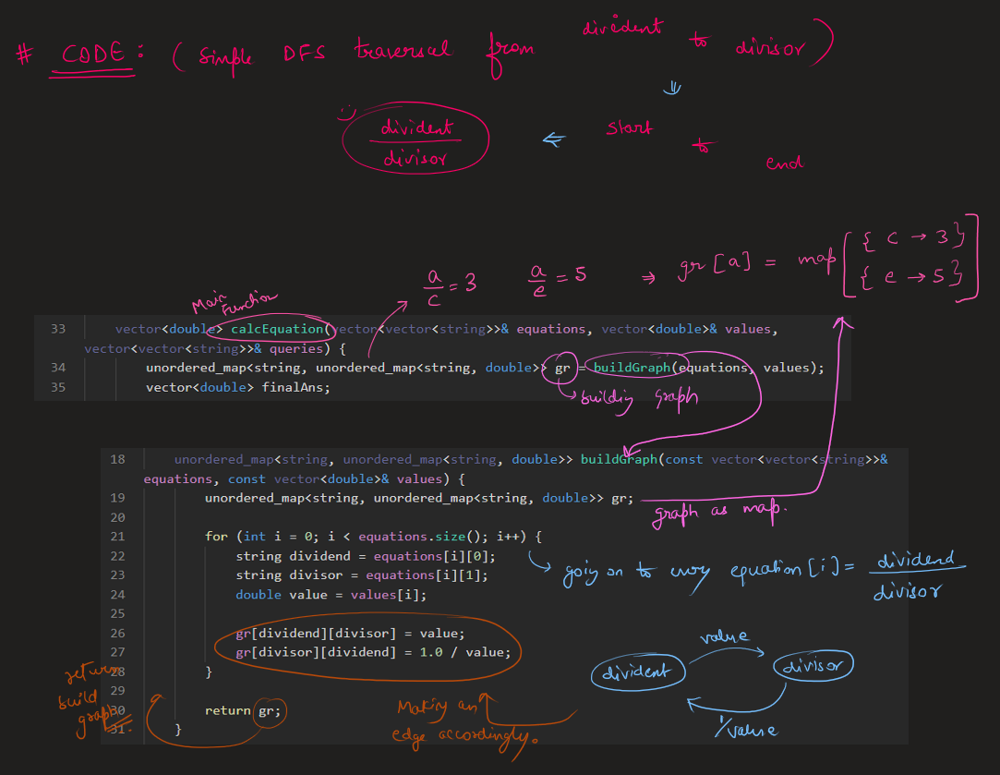 # CODE : ( Simple DFS traversal from divident to divisor )
divident
divisor
start
to
end
a/c = 3 a/e = 5 ⇒ gr [a] = map [ { c → 3 }
{ e → 5 } ]
Main Function
33 vector<double> calcEquation(vector<vector<string>>& equations, vector<double>& values,
vector<vector<string>>& queries) {
34 unordered_map<string, unordered_map<string, double>> gr = buildGraph(equations, values);
35 vector<double> finalAns;
building graph
18 unordered_map<string, unordered_map<string, double>> buildGraph(const vector<vector<string>>&
equations, const vector<double>& values) {
19 unordered_map<string, unordered_map<string, double>> gr;
graph as map.
20
21 for (int i = 0; i < equations.size(); i++) {
22 string dividend = equations[i][0];
23 string divisor = equations[i][1];
24 double value = values[i];
25
26 gr[dividend][divisor] = value;
27 gr[divisor][dividend] = 1.0 / value;
28 }
29
30 return gr;
31 }
going on to every equation [i] = dividend
divisor
value
divident
divisor
1/value
return
build
graph
Making an
edge accordingly.